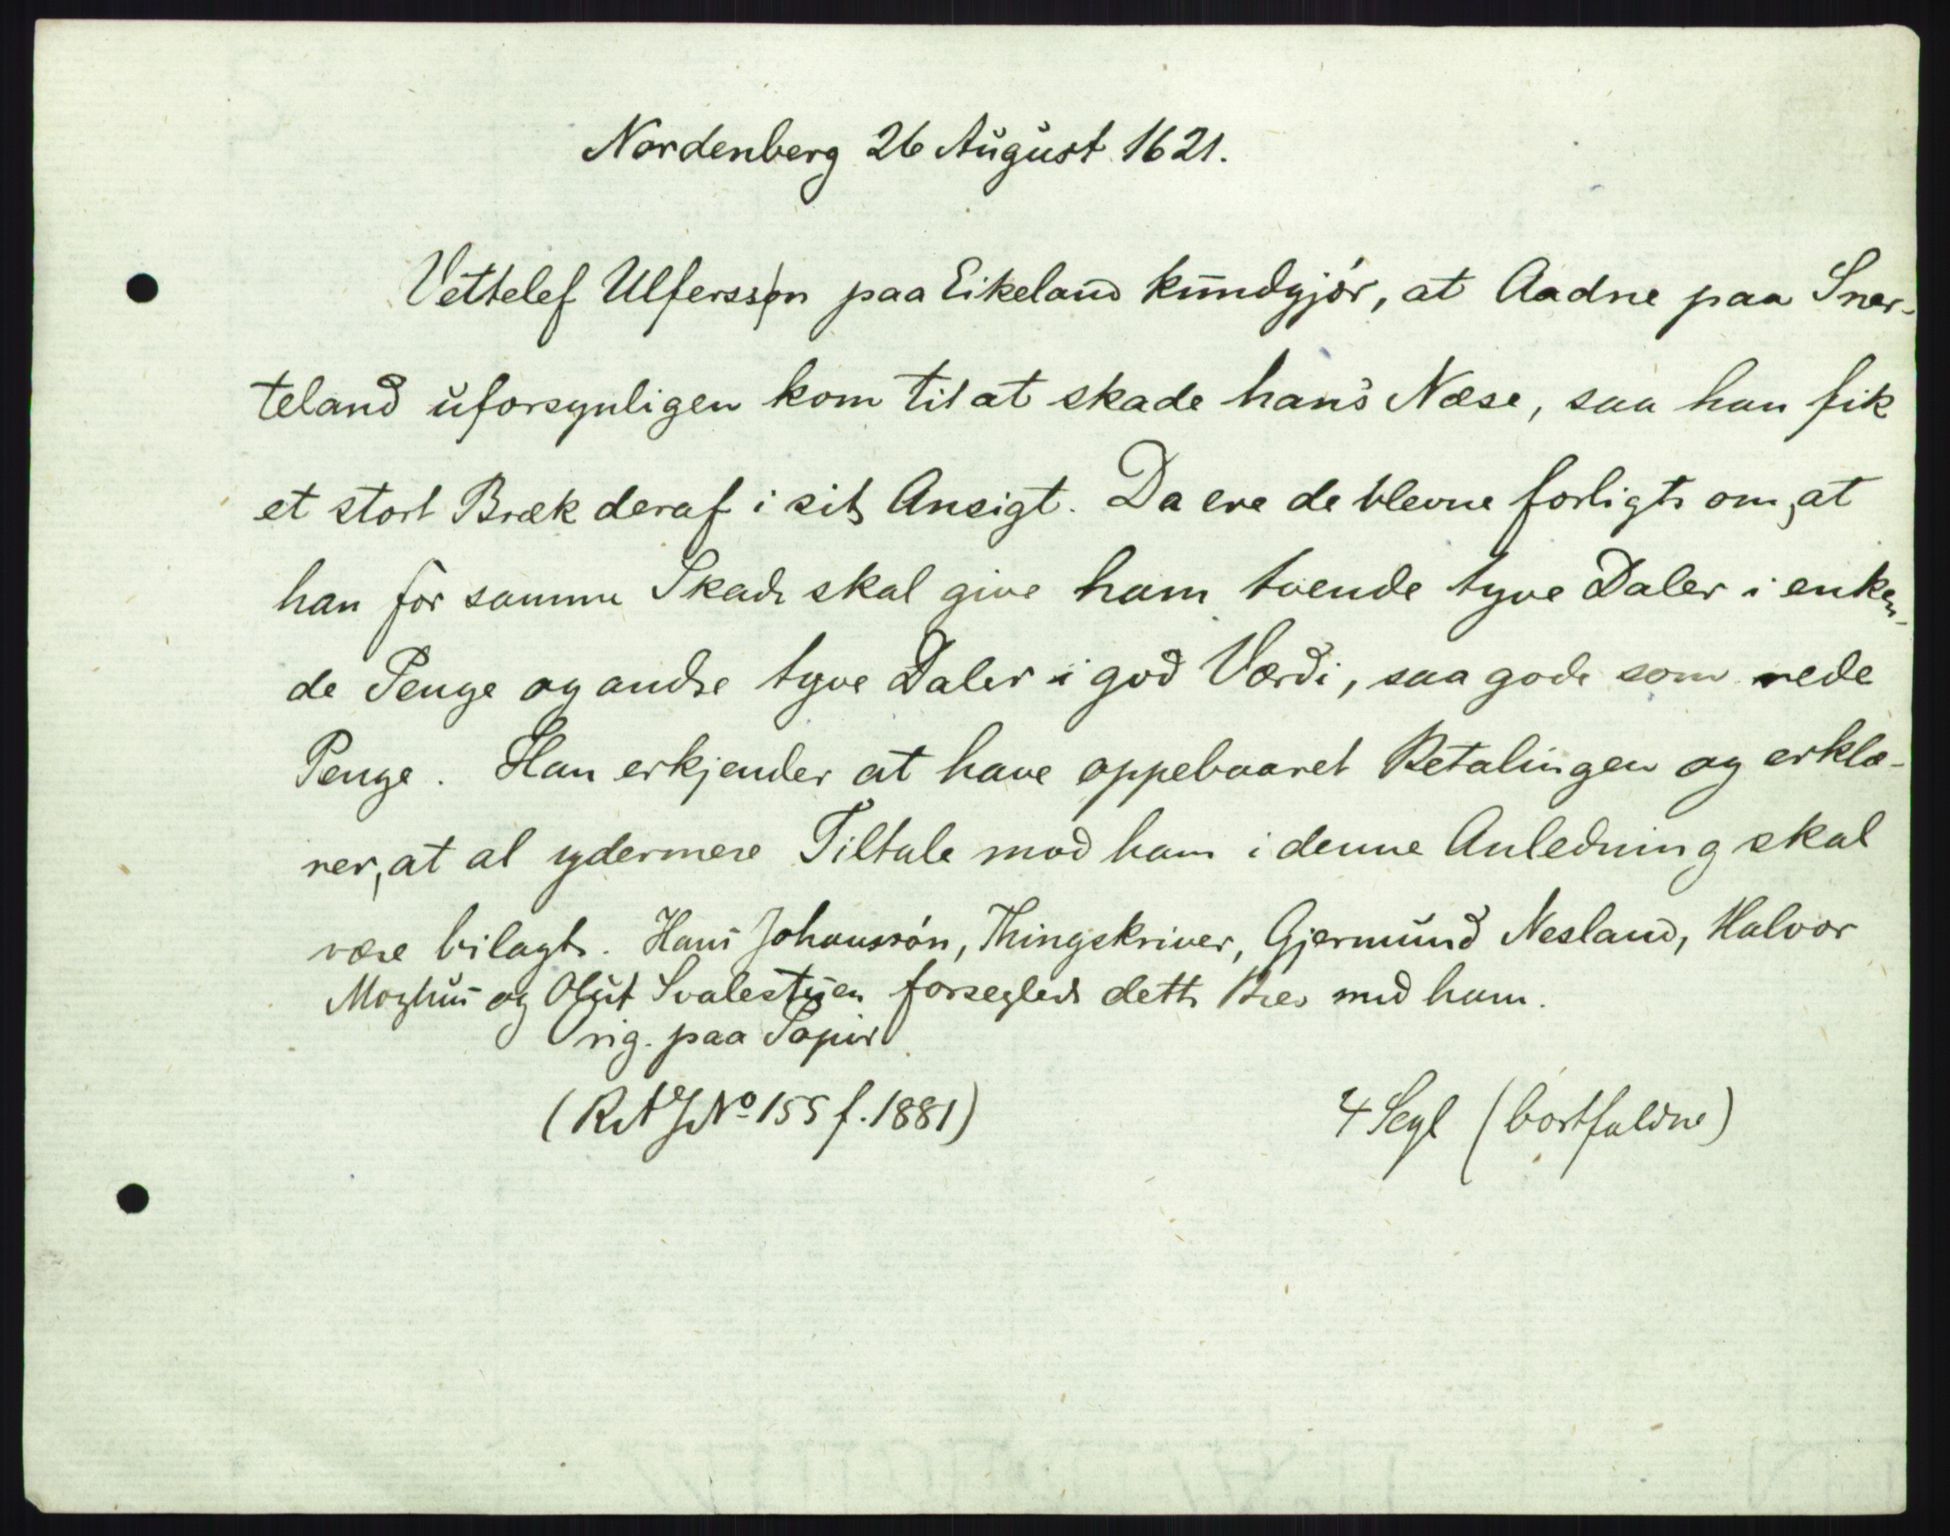 Nordenberg 26 August 1621.
Vettelef Ulferssøn paa Eikeland kundgjør, at Aadne paa Sner-
teland uforsynligen kom til at skade hans Næse, saa han fik
et stort Bræk deraf i sit Ansigt. Da ere de blevne forligte om, at
han for samme Skade skal give ham tvende tyve Daler i enken-
de Penge og andre tyve Daler i god Værdi, saa gode som rede
Penge. Han erkjender at have oppebaaret Betalingen og erklæ-
rer, at al ydermere Tiltale mod ham i denne Anledning skal
være bilagt. Hans Johanssøn, Thingskriver, Gjermund Nesland, Halvor
Moghus og Oluf Svalestuen forseglede dette Brev med ham.
Orig. paa Papir
(RA J No 155 f. 1881)
4 Segl (bortfaldne)